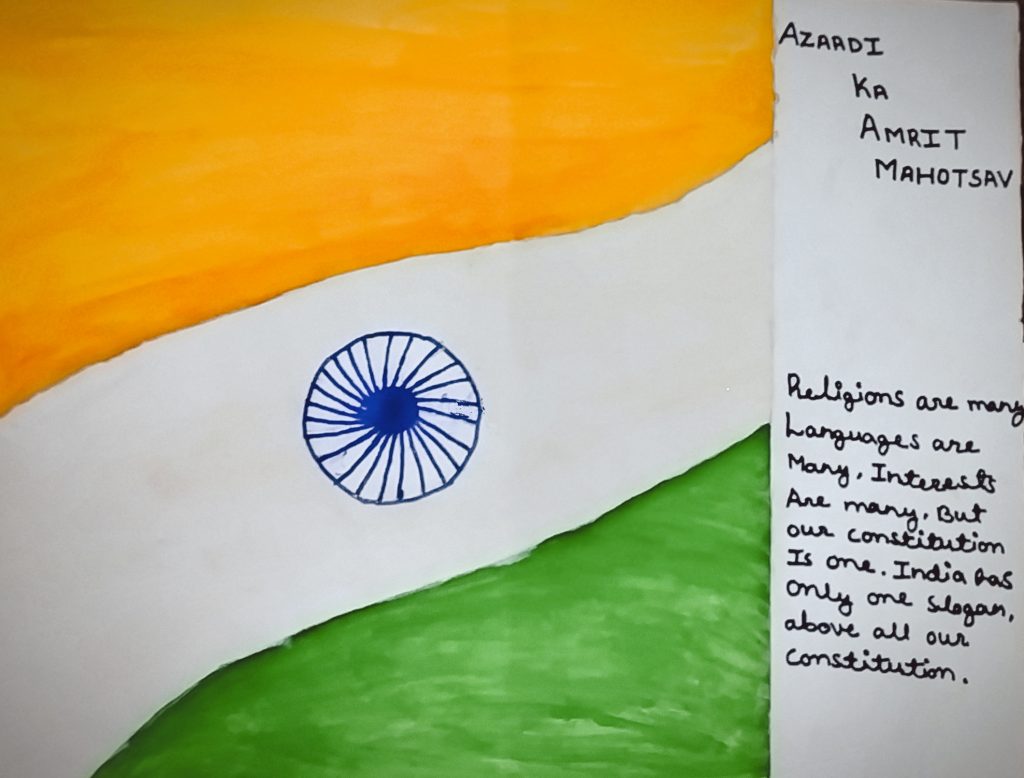 AZAADI
KA
AMRIT
MAHOTSAV
Religions are many
Languages are
Many, Interests
Are many, But
our constitution
Is one. India has
only one slogan,
above all our
constitution.